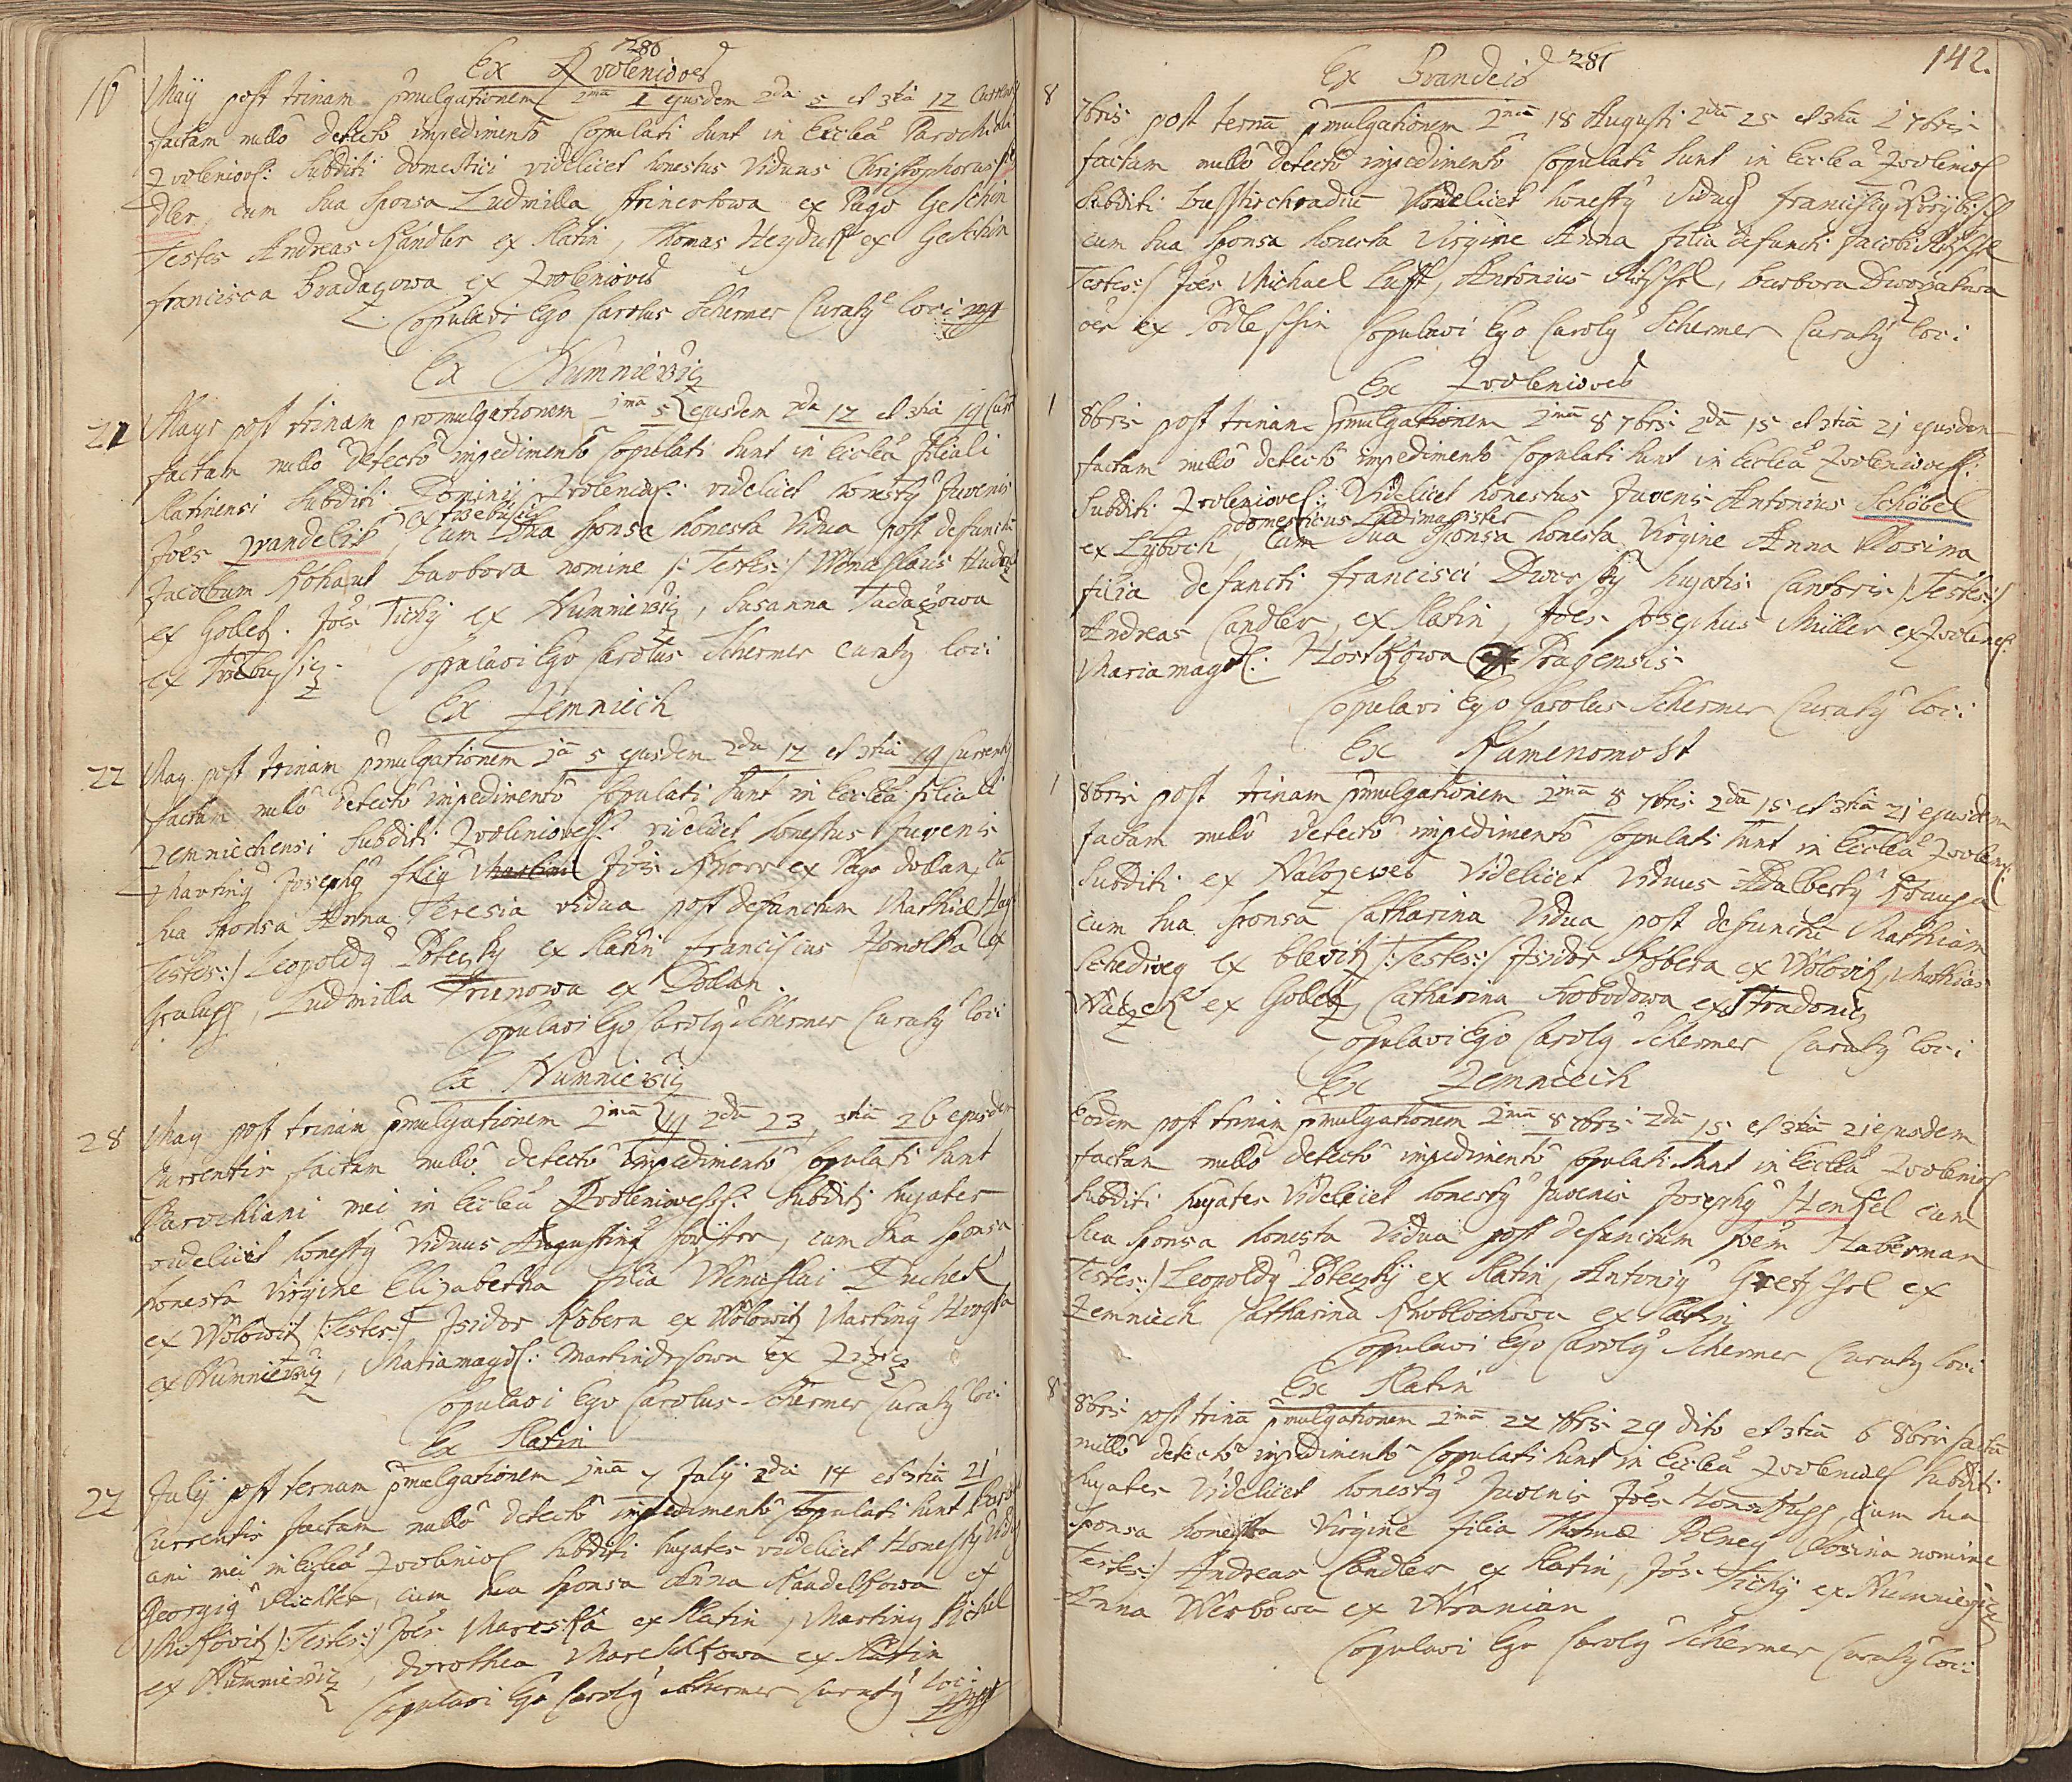 286
Ex Zvolenioves
16 Maÿ post trinam pmulgationem 1ma 1 ejusdem 2da 5 et 3tia 12 Currentis
factam nullo detecto impedimento Copulati sunt in Ecclea Parochiali
Zvoleniov: Subditi domestici videlicet honestus Viduus Christophorus
dler, cum sua sponsa Ludmilla ex Pago Geschin
Testes Andreas Kandler ex Slatin, Thomas Heyduk ex Geschin
francisca Bradazowa ex Zvolenioves
Copulavi Ego Carolus Schermer Curatg loci mp
Ex Humnieviz
21 May post trinam promulgationem 1ma 5 ejusdem 2da 12 et 3tia 19 Curr
factam nullo detecto impedimento Copulati sunt in Ecclea filiali
Slatinensi Subditi Dominij Zvoleniov: videlicet honestg Juvenis
ex Trzebusic
Joes Wandelik, cum sua sponsa honesta Vidua post defunctum
Jacobum Kohaut Barbora nomine /: Testes:/ Wenceslaus
ex Gollet. Joes Tichÿ ex Humnieviz, Susanna Tadazowa
ex Trzebusiz. Copulavi Ego Carolus Schermer Curatg loci
Ex Zemniech
22 May post trinam pmulgationem 1a 5 ejusdem 2da 12 et 3tia 19 Currentis
factam nullo detecto impedimento Copulati sunt in Ecclea filiali
Zemniechensi Subditi Zvolenioves: videlicet honestus Juvenis
Marting Josephg filig Jois Knorr ex Pago dollan, cu
sua sponsa Anna Theresia vidua post defunctum Mathiæ
Testes:/ Leopoldg Poteczky ex Slatin franciscus Homolka ex
Kralupp, Ludmilla Trunowa ex Dollan.
Copulavi Ego Carolg Schermer Curatg loci
Ex Humnieviz
28 May post trinam pmulgationem 1ma 19 2da 23, 3tia 26 ejusdem
Currentis factam nullo detecto impedimento Copulati sunt
Parochiani mei in Ecclea Zvoleniowess: Subditi hujates
videlicet honestg Viduus Augusting, cum sua sponsa
honesta Virgine Elizabetha filia Wenceslai Duchek
ex Wolowitz /:Testes:/ Isidor Kobera ex Wolowitz Marting
ex Humnieviz, Mariamagd: ex
Copulavi Ego Carolus Schermer Curatg loci
Ex Slatin
22 July post ternam pmulgationem 1ma 7 Julÿ 2da 14 et 3tia 21
Currentis factam nullo detecto impedimento Copulati sunt Parochi
ani mei in Ecclea Zvoleniov Subditi hujates videlicet Honestg Vidug
Georgig Richter, cum sua sponsa Anna ex
Miskovitz /:Testes:/ Joes Mareska ex Slatin, Marting Pichel
ex Humnieviz, dorothea Mareschkowa ex Slatin
Copulavi Ego Carolg Schermer Curatg loci mp
Ex Brandeis 281 142.
8 7bris post ternã pmulgationem 1ma 18 Augusti 2da 25 et 3tia 1 7bris
factam nullo detecto impedimento Copulati sunt in Ecclea Zvoleniov
Subditi Busstiehradiu Videlicet honestg Vidug franciscg
cum sua sponsa honesta Virgine Anna filia defuncti Jacobi
Testes:/ Joes Michael Lufft, Antonius, barbora
ex Podleschin Copulavi Ego Carolg Schermer Curatg loci
Ex Zvolenioves
1 8bris post trinam pmulgationem 1ma 8 7bris 2da 15 et 3tia 21 ejusdem
factam nullo detecto impedimento Copulati sunt in Ecclea Zvolenioves:
Subditi Zvoleniovess: Videlicet honestus Juvenis Antonius Schöbel
domesticus Ludimagister
ex Lyboch, cum sua Sponsa honesta Virgine Anna Rosina
filia defuncti francisci Dworsky hujatis Cantoris /:Testes:/
Andreas Candler ex Slatin, Joes Josephus Müller ex Zvolenes:
Mariamagd: Horskowa Pragensis
Copulavi Ego Carolus Schermer Curatg loci
Ex Kamenomost
1 8bris post trinam pmulgationem 1ma 8 7bris 2da 15 et 3tia 21 ejusdem
factam nullo detecto impedimento Copulati sunt in Ecclea Zvoleniov:
Subditi ex Halozeves Videlicet Viduus Adalbertg
cum sua sponsa Catharina Vidua post defunctu Mathiam
Schediveg ex blevitz /:Testes:/ Isidor Kobera ex Wolovitz, Mathias
Walzek ex Golletz, Catharina Swobodowa ex Stradoniz
Copulavi Ego Carolg Schermer Curatg loci
Ex Zemniech
Eodem post trinam pmulgationem 1ma 8 7bris 2da 15 et 3tia 21 ejusdem
factam nullo detecto impedimento Copulati sunt in Ecclea Zvoleniov
Subditi hujates Videlicet honestg Juvenis Josephg Henkel cum
sua sponsa honesta Vidua post defunctum Joem Haberman
Testes:/ Leopoldg Poteczkÿ ex Slatin, Antonig Gretschel ex
Zemniech Catharina Knoblochowa ex Slatin
Copulavi Ego Carolg Schermer Curatg loci
Ex Slatin
8 8bris post trinã pmulgationem 1ma 22 7bris 29 dito et 3tia 6 8bris factã
nullo detecto impedimento Copulati sunt in Ecclea Zvoleniov Subditi
hujates Videlicet honestg Juvenis Joes, cum sua
sponsa honesta Virgine filia Thomæ Polney Rosina nomine
Testes:/ Andreas Candler ex Slatin, Jos. Tichÿ ex Humnieviz
Anna Werbowa ex Wranian
Copulavi Ego Carolg Schermer Curatg loci